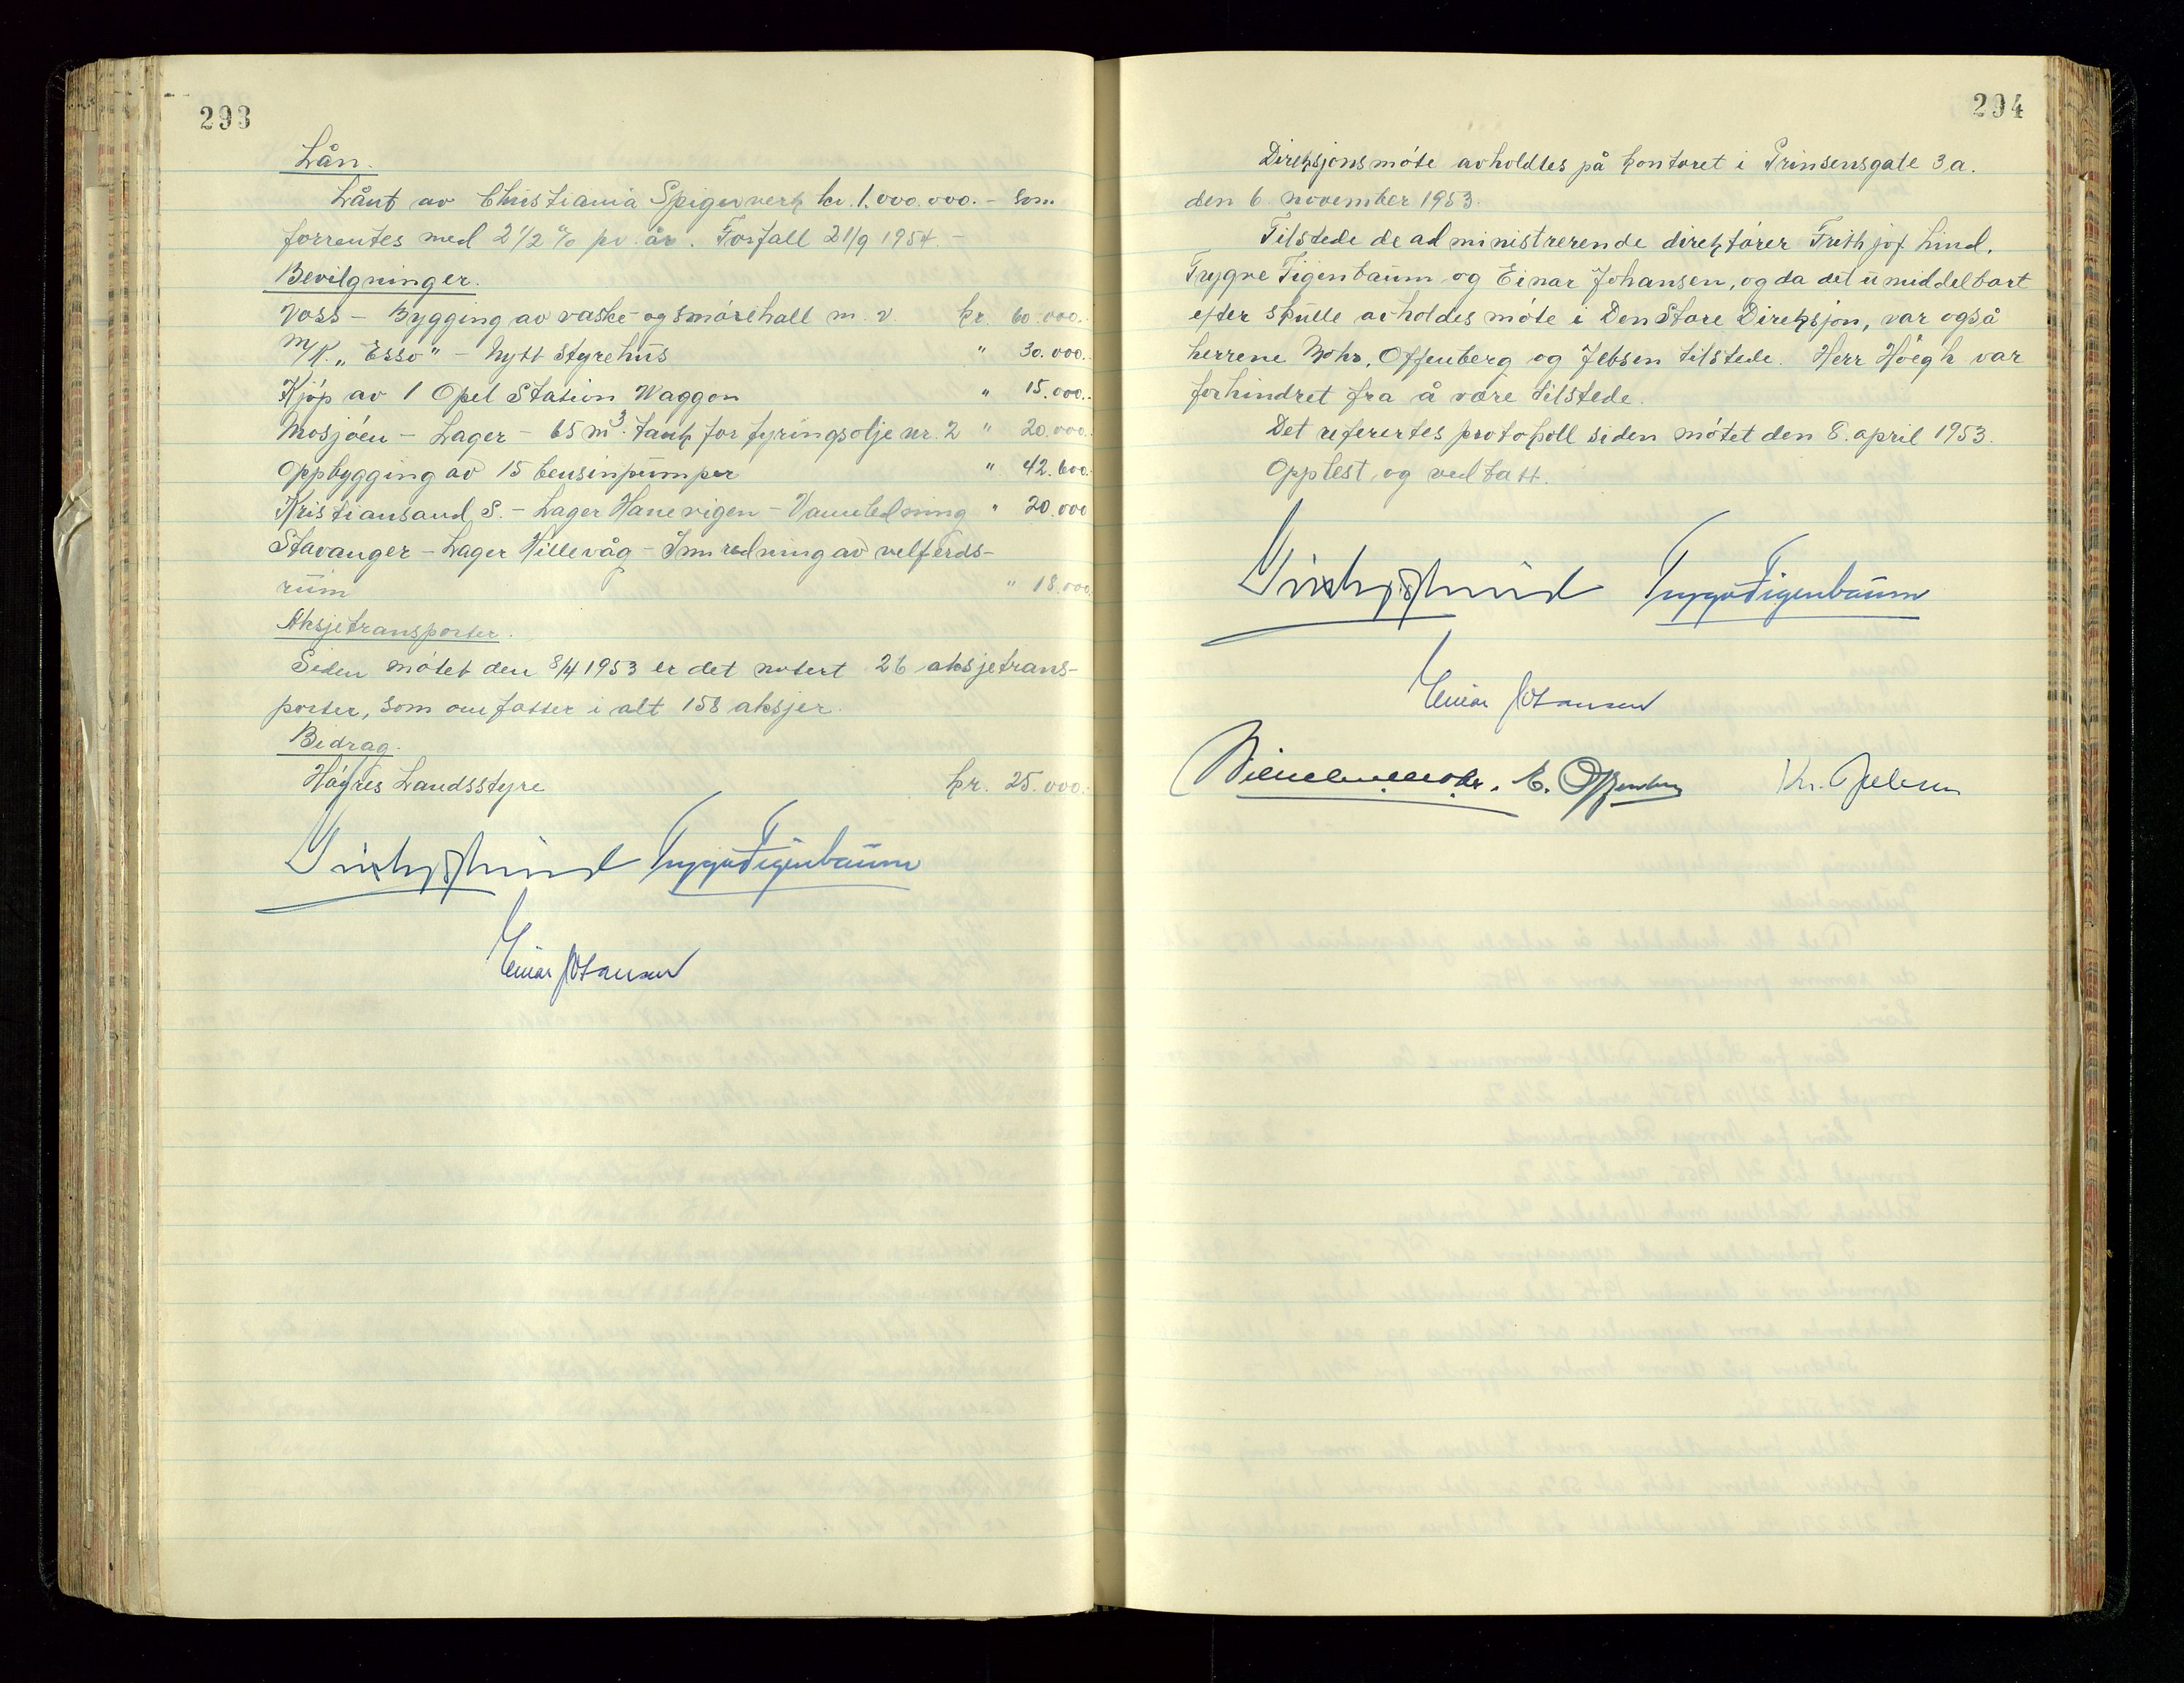 293
Lån.
Lånt av Christiania Spigerverk kr. 1.000.000.- som
forrentes med 2 1/2 % pr. år. Forfall 21/9 1954.-
Bevilgninger.
Voss - Bygging av vaske- og smørehall m. v. kr. 60.000.-
M/K. "Esso" - Nytt styrehus " 30.000.-
Kjøp av 1 Opel Station Waggon " 15.000.-
Mosjøen - Lager - 65 m³. tank for fyringsolje nr. 2 " 20.000.-
Oppbygging av 15 bensinpumper " 42.600.-
Kristiansand S. - Lager Hanevigen - Vannledning " 20.000
Stavanger - Lager Hillevåg - Innredning av velferds-
rum " 18.000.
Aksjetransporter.
Siden møtet den 8/4 1953 er det notert 26 aksjetrans-
porter, som omfatter i alt 158 aksjer.
Bidrag.
Høyres Landsstyre kr. 25.000.-
Frithjof Lind Trygve Figenbaum
Einar Johansen
294
Direksjonsmøte avholdtes på kontoret i Prinsensgate 3a.
den 6. november 1953.
Tilstede de administrerende direktører Frithjof Lind,
Trygve Figenbaum og Einar Johansen, og da det umiddelbart
efter skulle avholdes møte i Den Store Direksjon, var også
herrene Mohr, Offenberg og Jebsen tilstede. Herr Høegh var
forhindret fra å være tilstede.
Det refererertes protokoll siden møtet den 8. april 1953.
Opplest og vedtatt.
Frithjof Lind Trygve Figenbaum
Einar Johansen
Wilhelm Mohr. E. Offenberg Kr. Jebsen